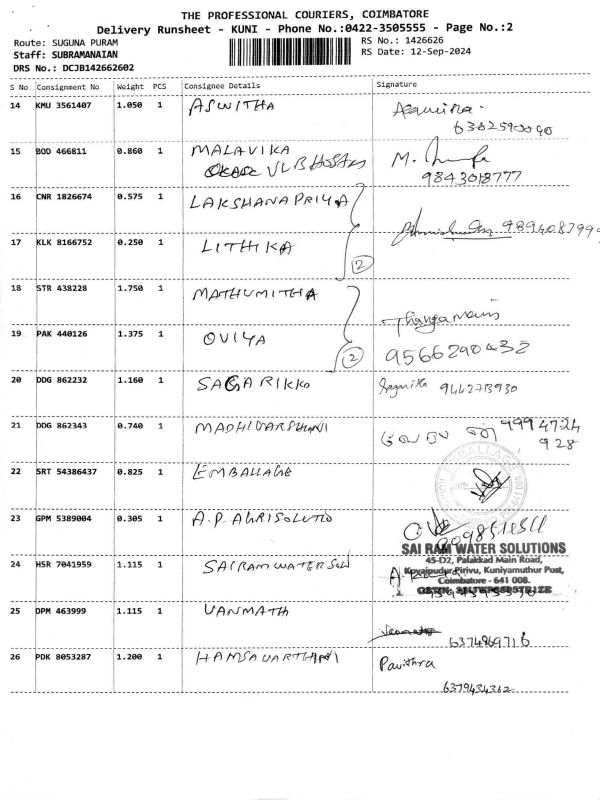 THE PROFESSIONAL COURIERS, COIMBATORE
Delivery Runsheet - KUNI - Phone No.:0422-3505555 - Page No.:2
Route: SUGUNA PURAM
RS No.: 1426626
Staff: SUBRAMANAIAN
RS Date: 12-Sep-2024
DRS No.: DCJB142662602
S No Consignment No Weight PCS Consignee Details Signature
14 KMU 3561407 1.050 1 ASWITHA
6382590090
15 BOD 466811 0.860 1 MALAVIKA M.
9843018777
16 CNR 1826674 0.575 1 LAKSHANAPRIYA
989408799
17 KLK 8166752 0.250 1 LITHIKA
2
18 STR 438228 1.750 1 MATHUMITHA
Thangamani
19 PAK 440126 1.375 1 OVIYA
2 9566290432
20 DDG 862232 1.160 1 SAGARIKKA Sagarika 9442713930
21 DDG 862343 0.740 1 MADHIVARSHANI 9994724
928
22 SRT 54386437 0.825 1 EMBALLAGE
EMBALLAGE
23 GPM 5389004 0.305 1 A.P. AGRISOLUTIO
SAI RAM WATER SOLUTIONS
45-D2, Palakkad Main Road,
24 HSR 7041959 1.115 1 SAIRAM WATER SOLU
Kovaipudur Pirivu, Kuniyamuthur Post,
Coimbatore - 641 008.
25 DPM 463999 1.115 1 VANMATH
6374869716
26 PDK 8053287 1.200 1 HAMSAVARTHANI Pavithra
6379434362